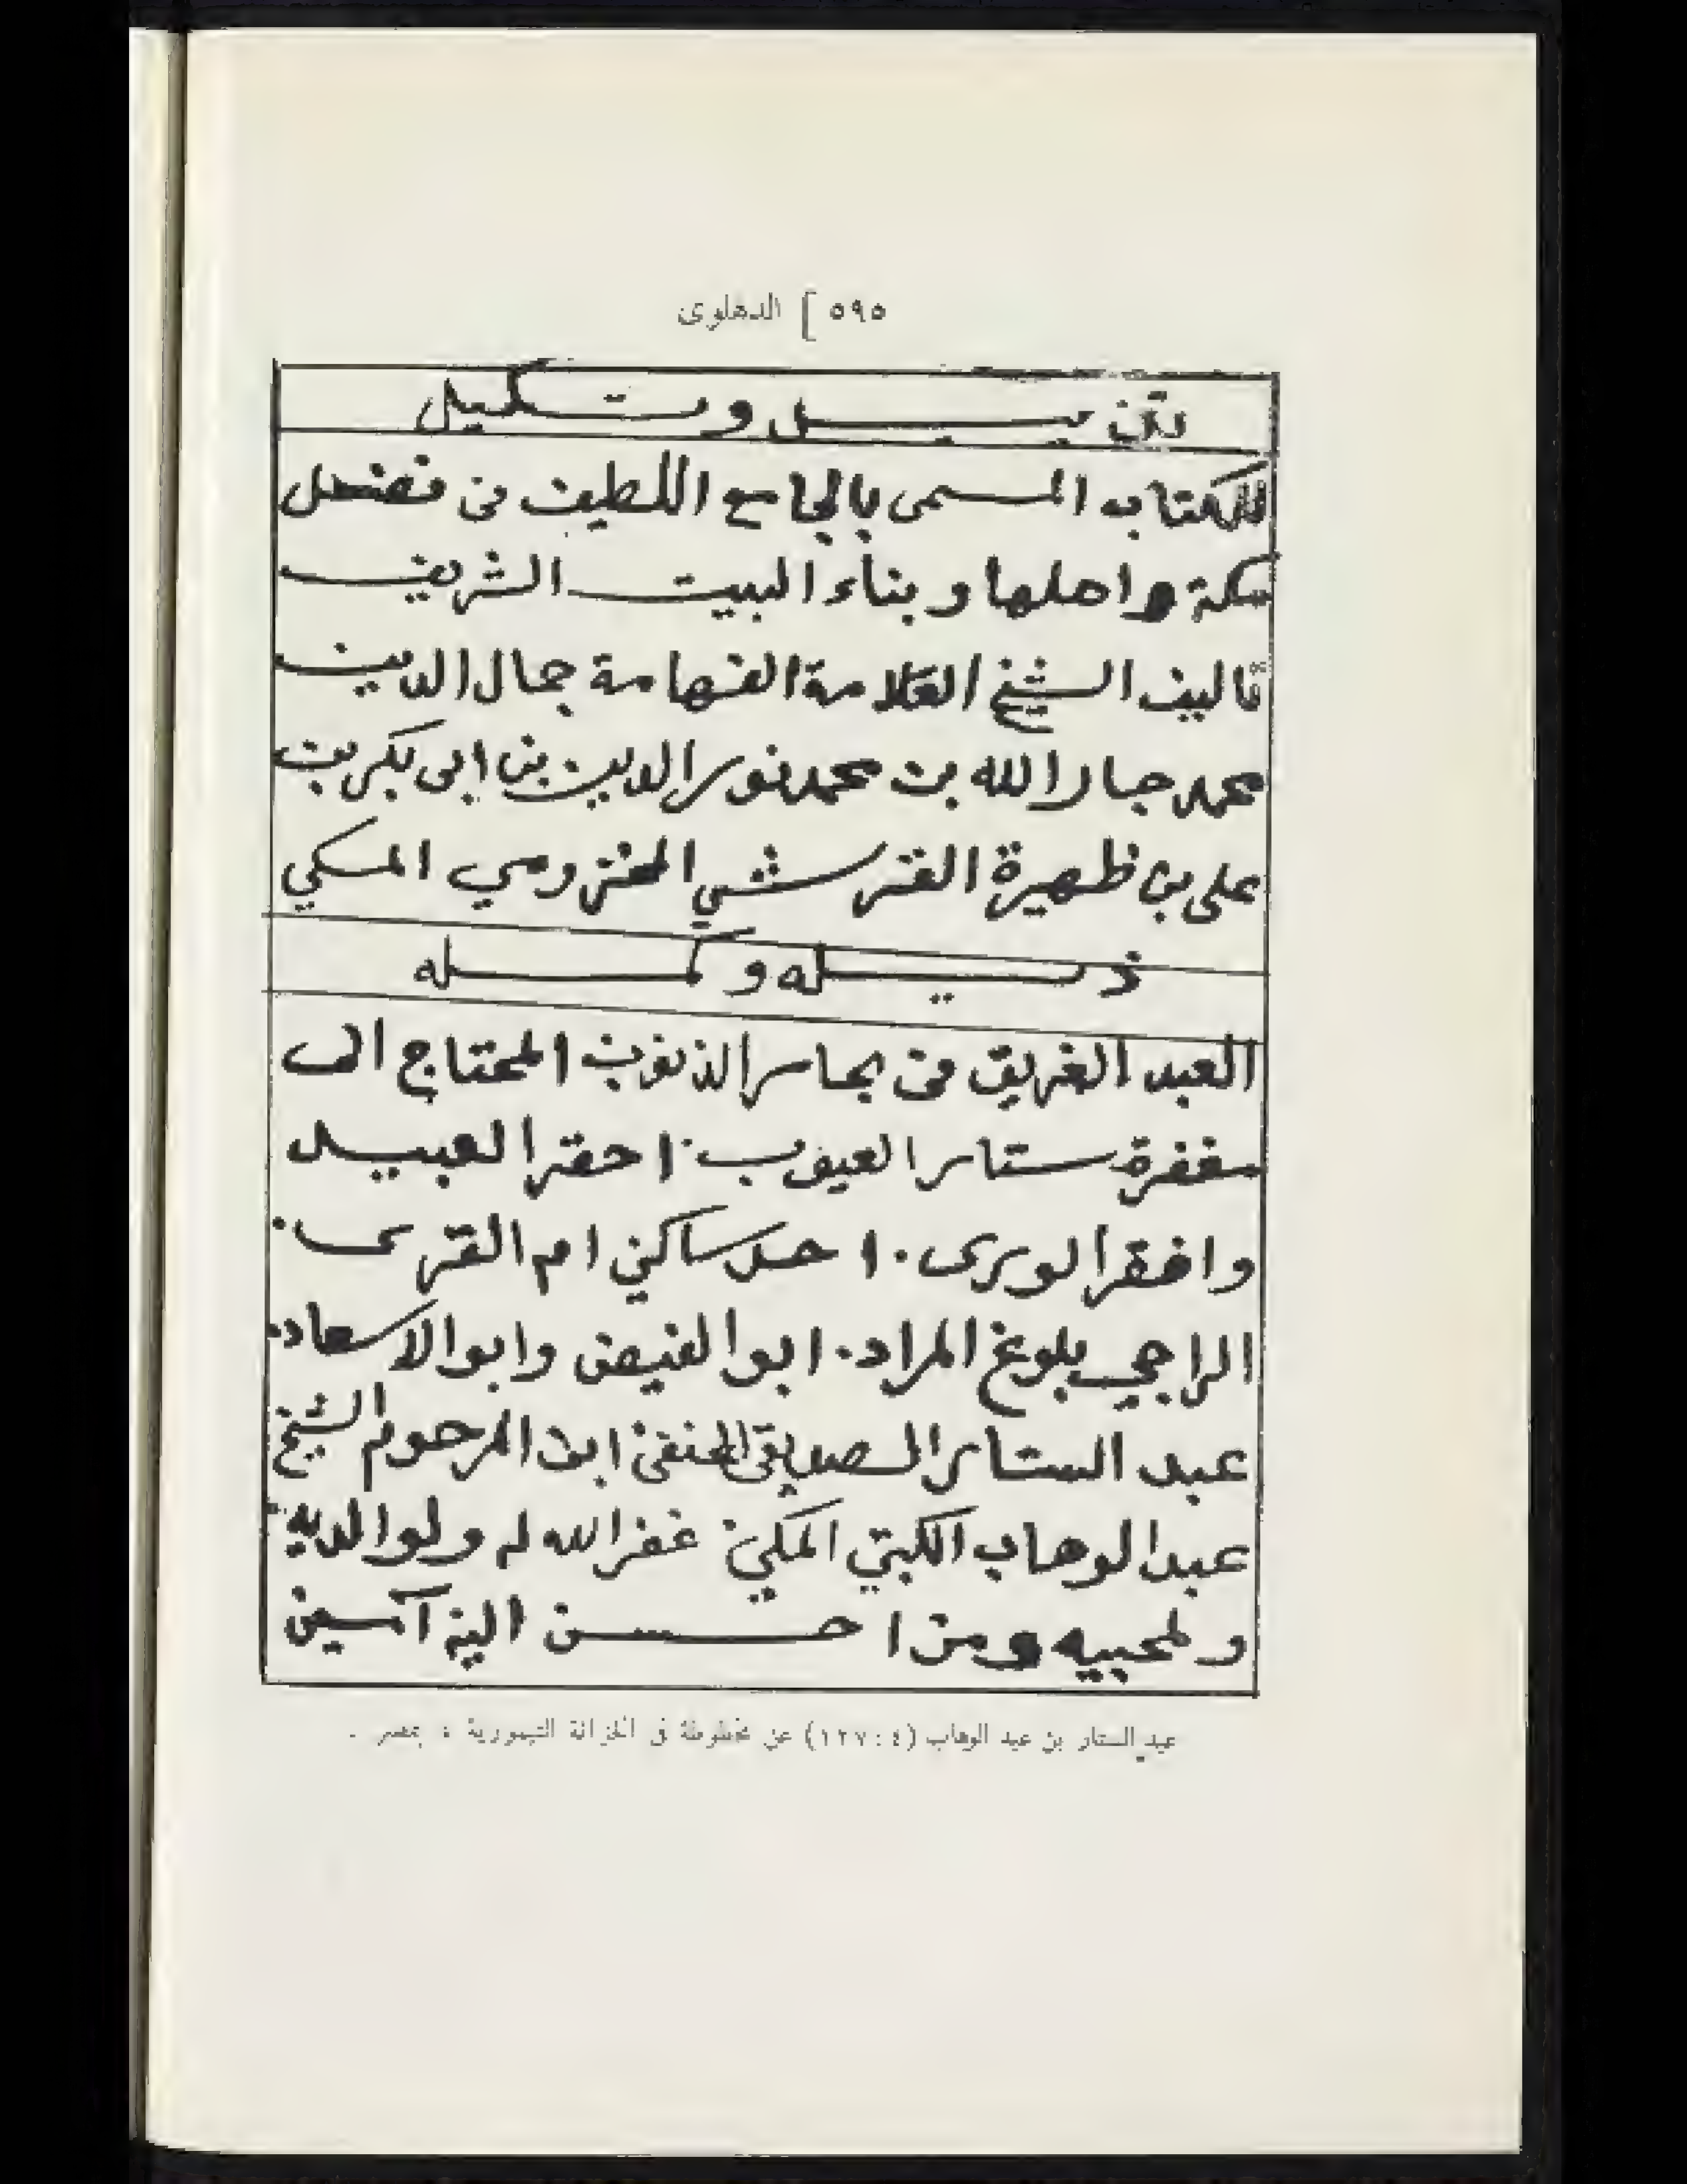 ٥٩٥ ] الدهلوى
تذييل وتكميل
للكتاب المسمى بالجامع اللطيف فى فضل
مكة واهلها وبناء البيت الشريف
تاليف الشيخ العلامة الفهامة جمال الدين
محمد جار الله بن محمد نور الدين بن ابى بكر بن
على بن ظهيرة القرشي المخزومي المكي
ذيله وكمله
العبد الغريق فى بحار الذنوب المحتاج الى
مغفرة ستار العيوب ٠ احقر العبيد
وافقر الورى ٠ احد ساكني ام القرى ٠
الراجي بلوغ المراد ٠ ابو الفيض وابو الاسعاد ٠
عبد الستار الصديقى الحنفى ابن المرحوم الشيخ
عبد الوهاب الكتبي المكي غفر الله له ولوالديه
ولمحبيه ومن احسن اليه آمين
عبد الستار بن عبد الوهاب (٤ : ١٢٧) عن مخطوطة فى الخزانة التيمورية ، بمصر .